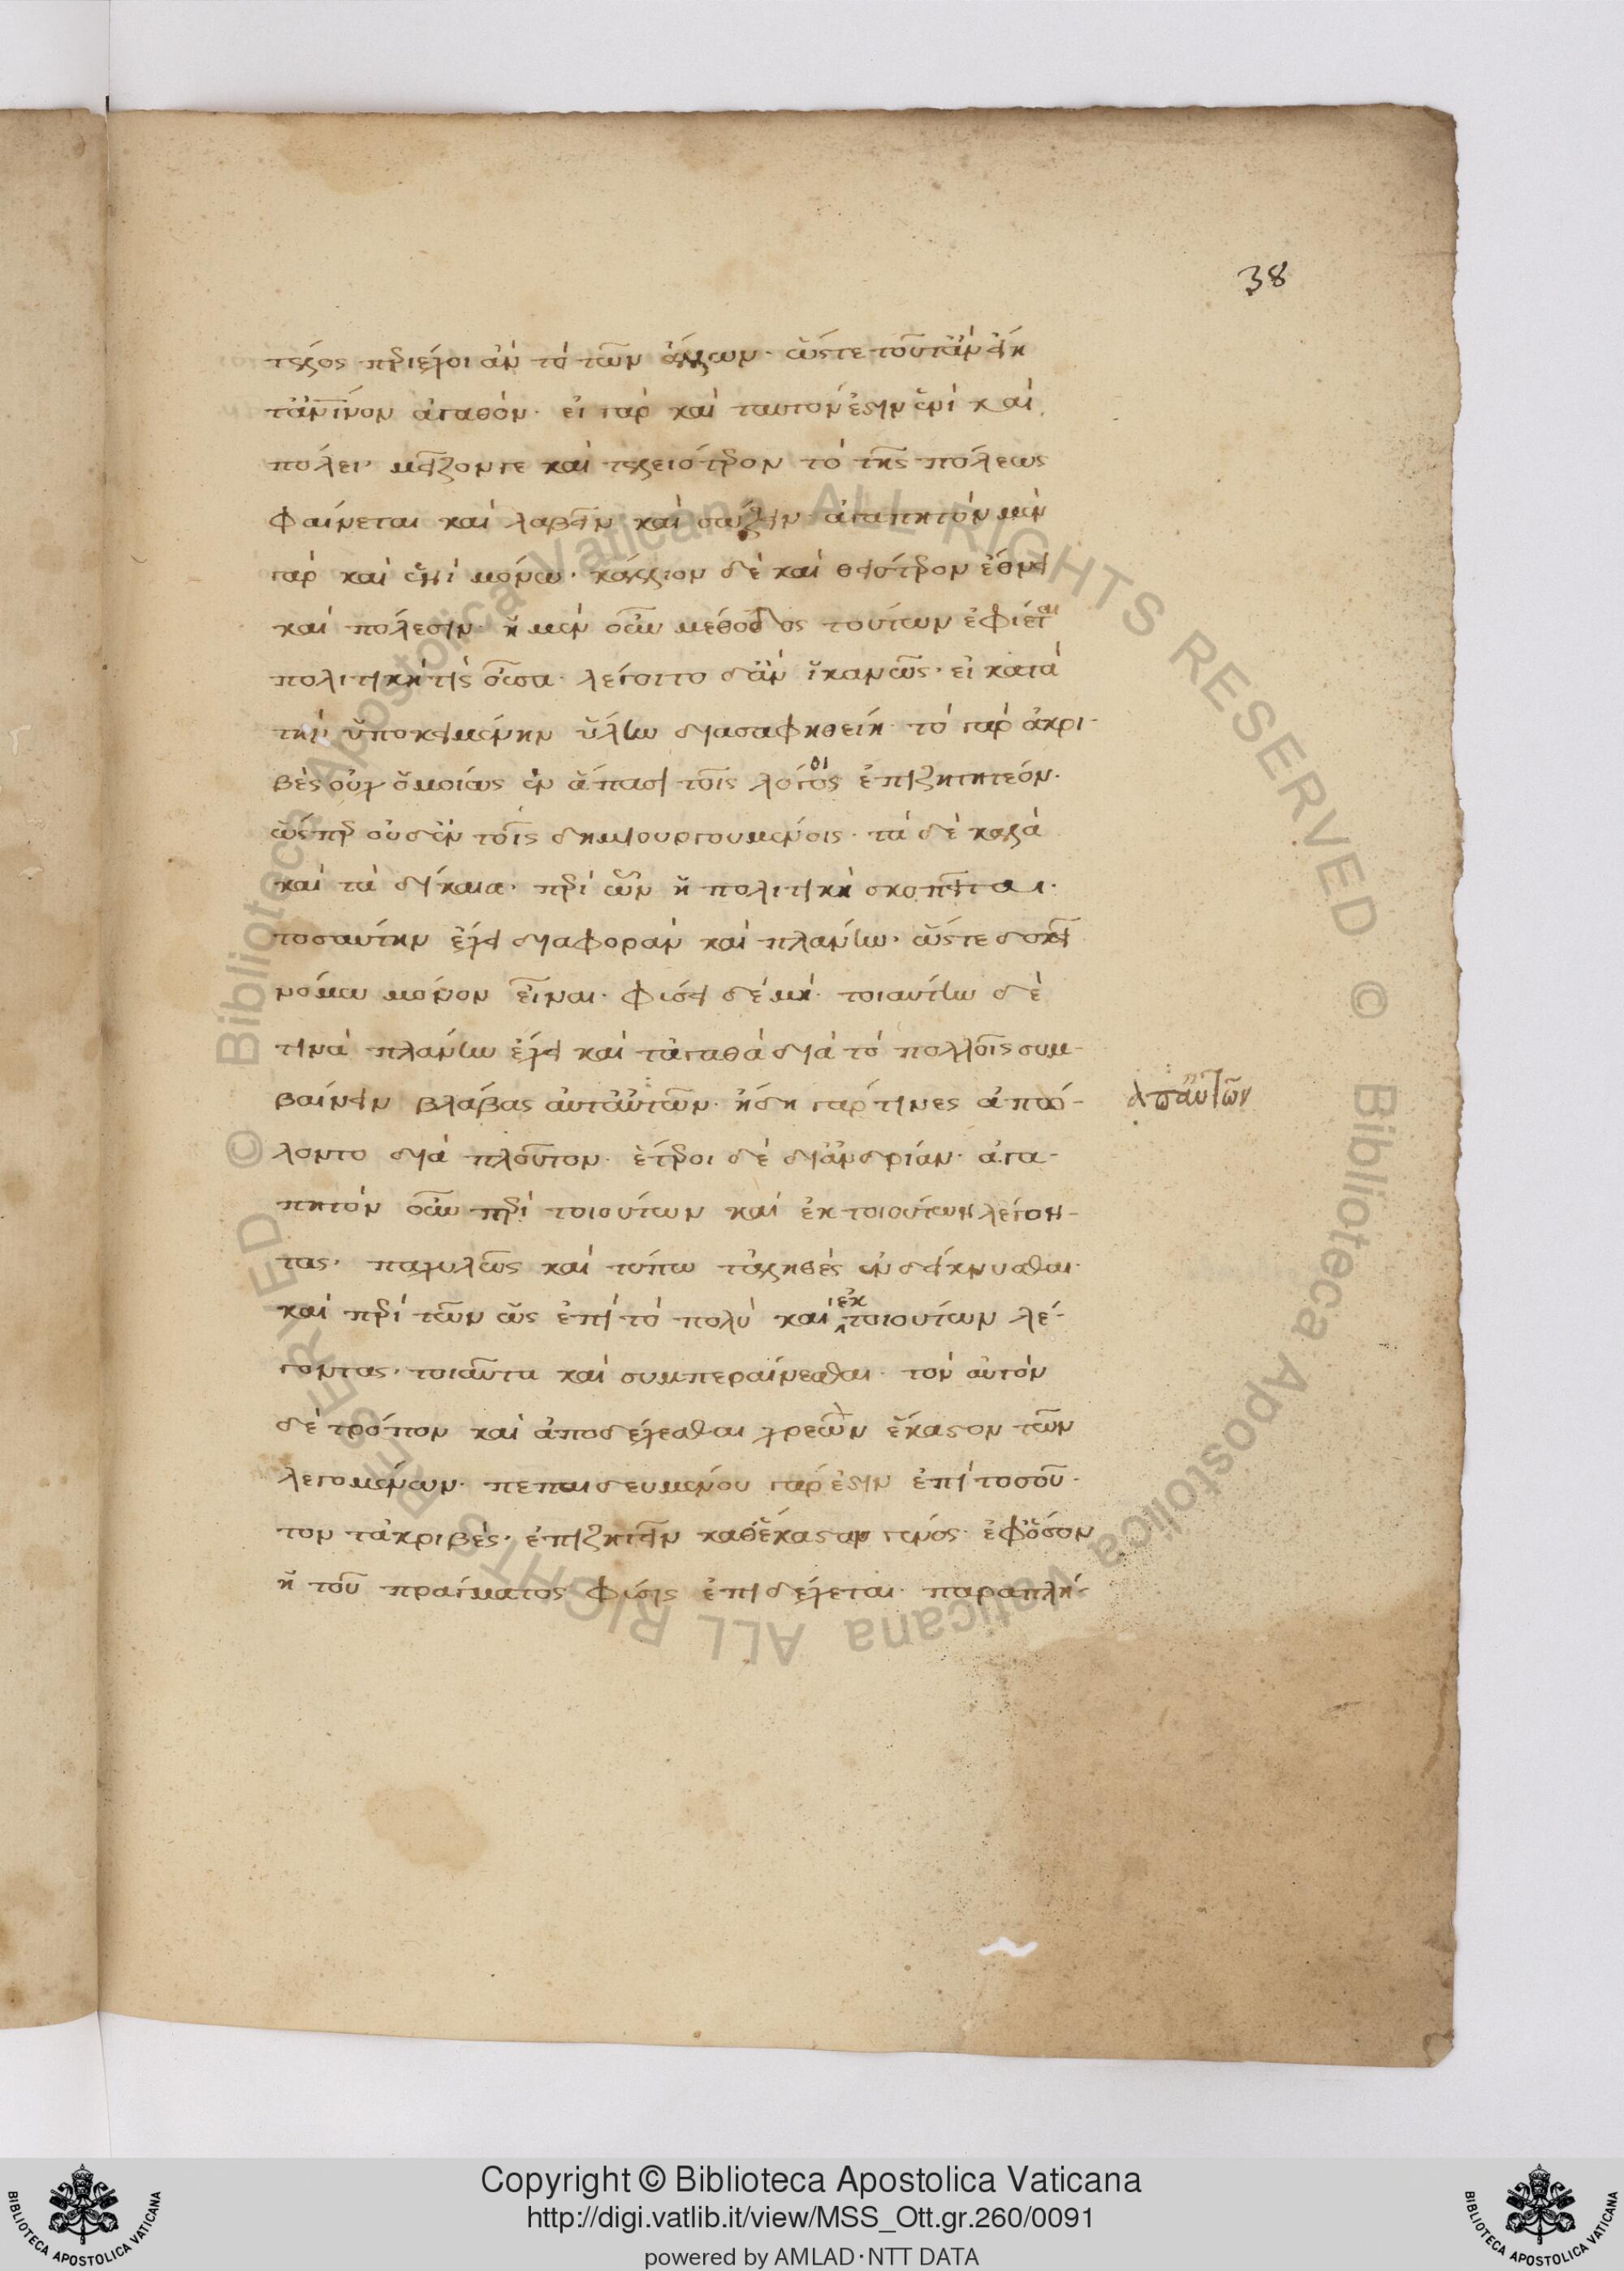 38
τέλος περιέχοι ἂν τὸ τῶν ἄλλων· ὥστε τοῦτ' ἂν εἴη
τἀνθρώπινον ἀγαθόν· εἰ γὰρ καὶ ταυτόν ἐστιν ἑνὶ καὶ
πόλει, μεῖζόν τε καὶ τελειότερον τὸ τῆς πόλεως
φαίνεται καὶ λαβεῖν καὶ σῴζειν· ἀγαπητὸν μὲν
γὰρ καὶ ἑνὶ μόνω· κάλλιον δὲ καὶ θειότερον ἔθνει
καὶ πόλεσιν· ἡ μὲν οὖν μέθοδος τούτων ἐφίεται
πολιτική τις οὖσα· λέγοιτο δ' ἂν ἱκανῶς· εἰ κατὰ
τὴν ὑποκειμένην ὕλην διασαφηθείη· τὸ γὰρ ἀκρι-
βὲς οὐχ ὁμοίως ἐν ἅπασι τοῖς λόγοις ἐπιζητητέον·
ὥσπερ οὐδ' ἐν τοῖς δημιουργουμένοις· τὰ δὲ καλὰ
καὶ τὰ δίκαια· περὶ ὧν ἡ πολιτικὴ σκοπεῖται·
τοσαύτην ἔχει διαφορὰν καὶ πλάνην· ὥστε δοκεῖ
νόμω μόνον εἶναι· φύσει δὲ μή· τοιαύτην δέ
τινα πλάνην ἔχει καὶ τἀγαθὰ διὰ τὸ πολλοῖς συμ-
βαίνειν βλάβας ἀπ' αὐτῶν· ἤδη γάρ τινες ἀπώ-
λοντο διὰ πλοῦτον· ἕτεροι δὲ δι' ἀνδρίαν· ἀγα-
πητὸν οὖν περὶ τοιούτων καὶ ἐκ τοιούτων λέγον-
τας· παχυλῶς καὶ τύπω τἀληθὲς ἐνδείκνυσθαι·
καὶ περὶ τῶν ὡς ἐπὶ τὸ πολὺ καὶ ἐκ τοιούτων λέ-
γοντας· τοιαῦτα καὶ συμπεραίνεσθαι· τὸν αὐτὸν
δὲ τρόπον καὶ ἀποδέχεσθαι χρεὼν ἕκαστον τῶν
λεγομένων· πεπαιδευμένου γάρ ἐστιν ἐπὶ τοσοῦ-
τον τἀκριβὲς· ἐπιζητεῖν καθ' ἕκαστον γένος· ἐφ' ὅσον
ἡ τοῦ πράγματος φύσις ἐπιδέχεται· παραπλή-
ἀπ' αὐτῶν
Copyright © Biblioteca Apostolica Vaticana
http://digi.vatlib.it/view/MSS_Ott.gr.260/0091
powered by AMLAD·NTT DATA
BIBLIOTECA APOSTOLICA VATICANA
BIBLIOTECA APOSTOLICA VATICANA
© Biblioteca Apostolica Vaticana ALL RIGHTS RESERVED © Biblioteca Apostolica Vaticana ALL RIGHTS RESERVED